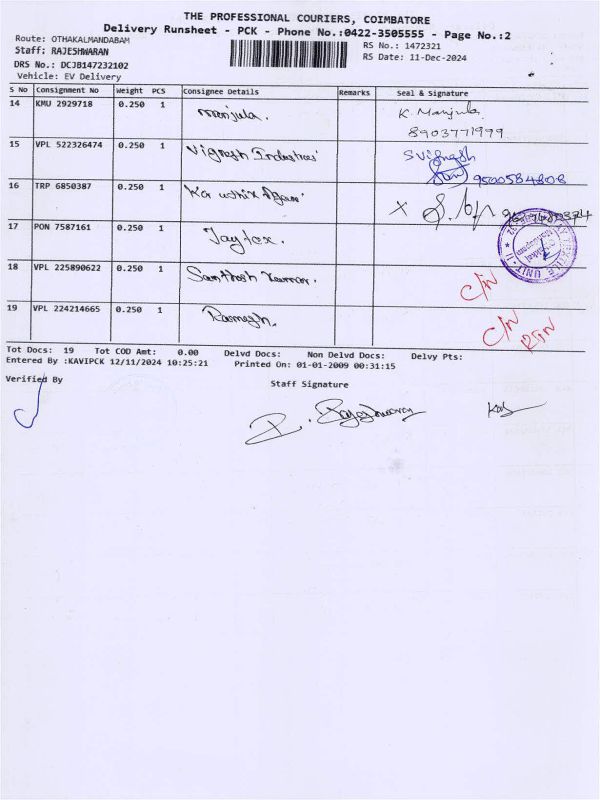 THE PROFESSIONAL COURIERS, COIMBATORE
Delivery Runsheet - PCK - Phone No.:0422-3505555 - Page No.:2
Route: OTHAKALMANDABAM
Staff: RAJESHWARAN
RS No.: 1472321
DRS No.: DCJB147232102
RS Date: 11-Dec-2024
Vehicle: EV Delivery
S No Consignment No Weight PCS Consignee Details Remarks Seal & Signature
14 KMU 2929718 0.250 1 Manjula. K. Manjula
8903771999
15 VPL 522326474 0.250 1 Vignesh Industries S Vignesh
9500584808
16 TRP 6850387 0.250 1 X
17 PON 7587161 0.250 1 Jaytex.
UNIT - II
18 VPL 225890622 0.250 1 Santhosh Kumar. C/N
19 VPL 224214665 0.250 1 Ramesh. C/N
Tot Docs: 19 Tot COD Amt: 0.00 Delvd Docs: Non Delvd Docs: Delvy Pts:
Entered By :KAVIPCK 12/11/2024 10:25:21 Printed On: 01-01-2009 00:31:15
Verified By
Staff Signature